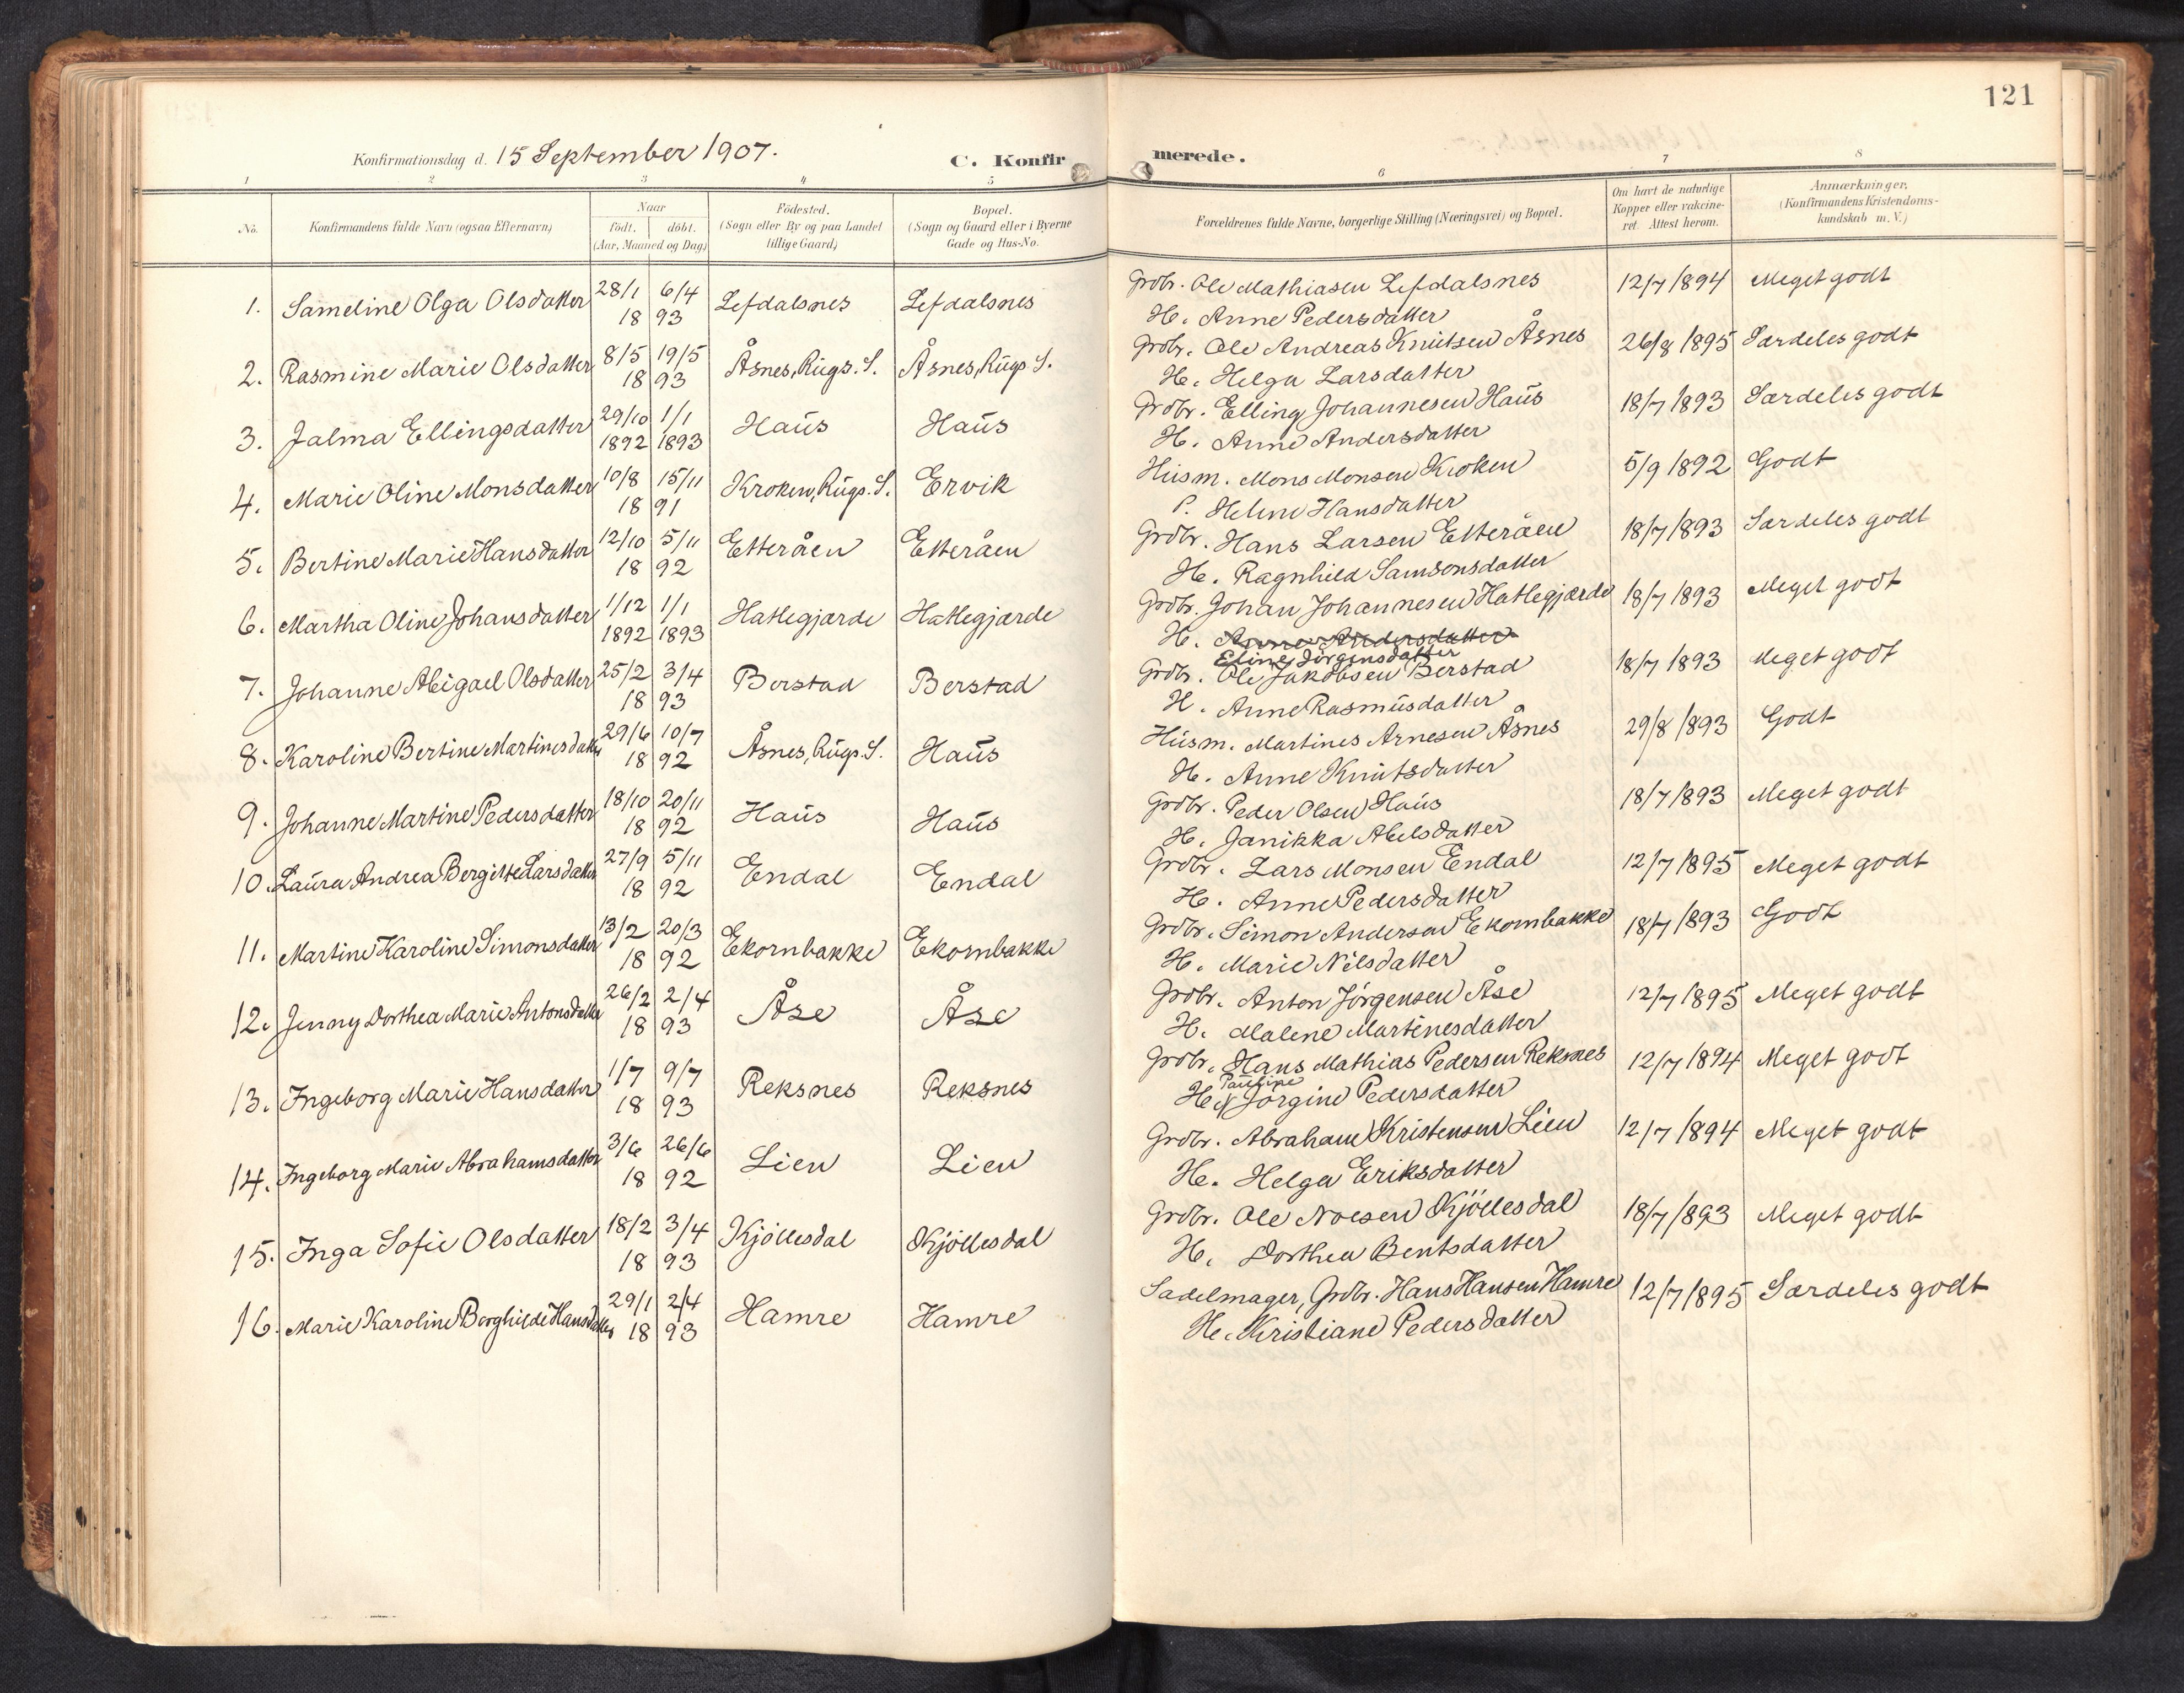 121
Konfirmationsdag d. 15 September 1907.
C. Konfirmerede.
1 2 3 4 5 6 7 8
No. Konfirmandens fulde Navn (ogsaa Efternavn) Naar födt. döbt. (Aar, Maaned og Dag) Födested. (Sogn eller By og paa Landet tillige Gaard) Bopæl. (Sogn og Gaard eller i Byerne Gade og Hus-No. Forældrenes fulde Navne, borgerlige Stilling (Næringsvei) og Bopæl. Om havt de naturlige Kopper eller vakcineret. Attest herom. Anmærkninger. (Konfirmandens Kristendomskundskab m. V.)
1. Sameline Olga Olsdatter 28/1 6/4 Lefdalsnes Lefdalsnes Grdbr. Ole Mathiasen Lefdalsnes 12/7 1894 Meget godt
18 93 H. Anne Pedersdatter
2. Rasmine Marie Olsdatter 8/5 19/5 Åsnes, Rugs. S. Åsnes, Rugs S. Grdbr. Ole Andreas Knutsen Åsnes 26/8 1895 Særdeles godt
18 93 H. Helga Larsdatter
3. Jalma Ellingsdatter 29/10 1/1 Haus Haus Grdbr. Elling Johannesen Haus 18/7 1893 Særdeles godt
1892 1893 H. Anne Andersdatter
4. Marie Oline Monsdatter 10/8 15/11 Kroken, Rugs. S. Ervik Husm. Mons Monsen Kroken 5/9 1892 Godt
18 91 P. Helene Hansdatter
5. Bertine Marie Hansdatter 12/10 5/11 Etteråen Etteråen Grdbr. Hans Larsen Etteråen 18/7 1893 Særdeles godt
18 92 H. Ragnhild Samsonsdatter
6. Martha Oline Johansdatter 1/12 1/1 Hatlegjærde Hatlegjærde Grdbr. Johan Johannesen Hatlegjærde 18/7 1893 Meget godt
1892 1893 H. Anne Andersdatter
Eline Jörgensdatter
7. Johanne Abigael Olsdatter 25/2 3/4 Berstad Berstad Grdbr. Ole Jakobsen Berstad 18/7 1893 Meget godt
18 93 H. Anne Rasmusdatter
8. Karoline Bertine Martinesdatter 29/6 10/7 Åsnes, Rugs. S. Haus Husm. Martines Arnesen Åsnes 29/8 1893 Godt
18 92 H. Anne Knutsdatter
9. Johanne Martine Pedersdatter 18/10 20/11 Haus Haus Grdbr. Peder Olsen Haus 18/7 1893 Meget godt
18 92 H. Janikka Abelsdatter
10. Laura Andrea Bergitte Larsdatter 27/9 5/11 Endal Endal Grdbr. Lars Monsen Endal 12/7 1895 Meget godt
18 92 H. Anne Pedersdatter
11. Martine Karoline Simonsdatter 13/2 20/3 Ekornbakke Ekornbakke Grdbr. Simon Andersen Ekornbakke 18/7 1893 Godt
18 92 H. Marie Nilsdatter
12. Jenny Dorthea Marie Antonsdatter 26/2 2/4 Åse Åse Grdbr. Anton Jörgensen Åse 12/7 1895 Meget godt
18 93 H. Malene Martinesdatter
13. Ingeborg Marie Hansdatter 1/7 9/7 Reksnes Reksnes Grdbr. Hans Mathias Pedersen Reksnes 12/7 1894 Meget godt
18 93 H. Pauline Jörgine Pedersdatter
14. Ingeborg Marie Abrahamsdatter 3/6 26/6 Lien Lien Grdbr. Abraham Kristensen Lien 12/7 1894 Meget godt
18 92 H. Helga Eriksdatter
15. Inga Sofie Olsdatter 18/2 3/4 Kjöllesdal Kjöllesdal Grdbr. Ole Noesen Kjöllesdal 18/7 1893 Meget godt
18 93 H. Dorthea Bentsdatter
16. Marie Karoline Borghilde Hansdatter 29/1 2/4 Hamre Hamre Sadelmager, Grdbr. Hans Hansen Hamre 12/7 1895 Særdeles godt
18 93 H. Kristiane Pedersdatter